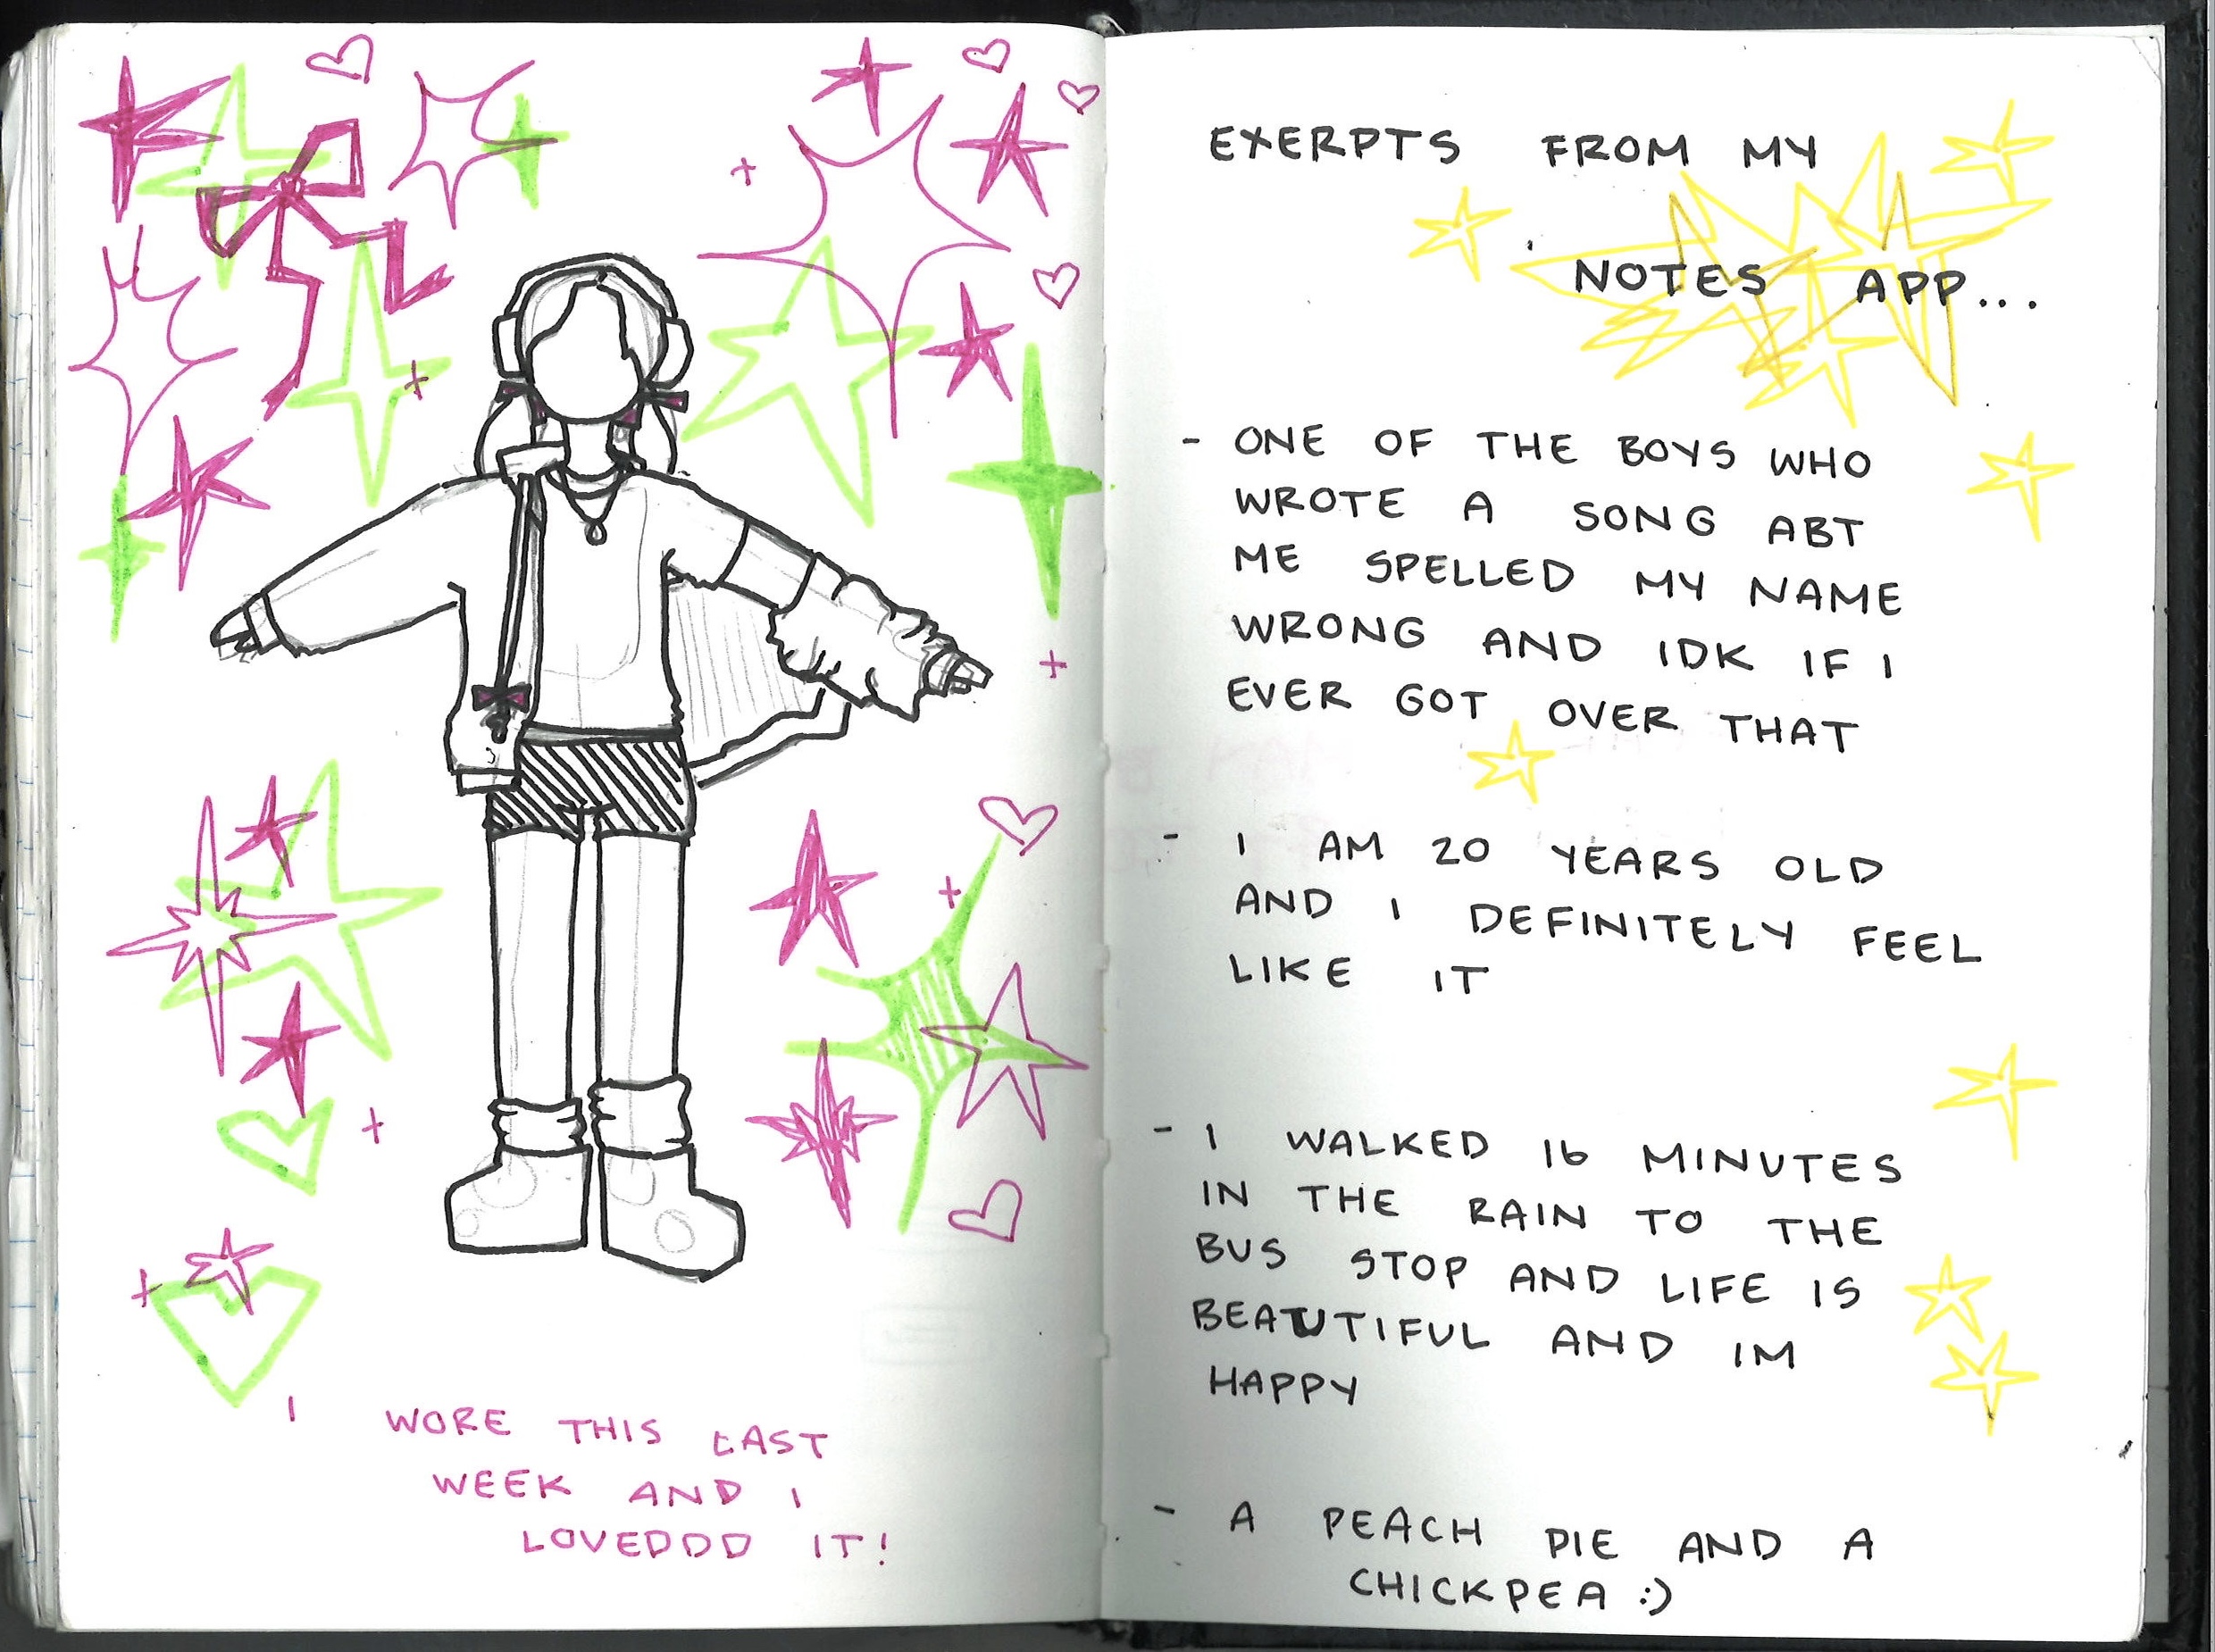 I WORE THIS LAST
WEEK AND I
LOVEDDD IT!
EXERPTS FROM MY
NOTES APP...
- ONE OF THE BOYS WHO
WROTE A SONG ABT
ME SPELLED MY NAME
WRONG AND IDK IF I
EVER GOT OVER THAT
- I AM 20 YEARS OLD
AND I DEFINITELY FEEL
LIKE IT
- I WALKED 16 MINUTES
IN THE RAIN TO THE
BUS STOP AND LIFE IS
BEAUTIFUL AND IM
HAPPY
- A PEACH PIE AND A
CHICKPEA :)